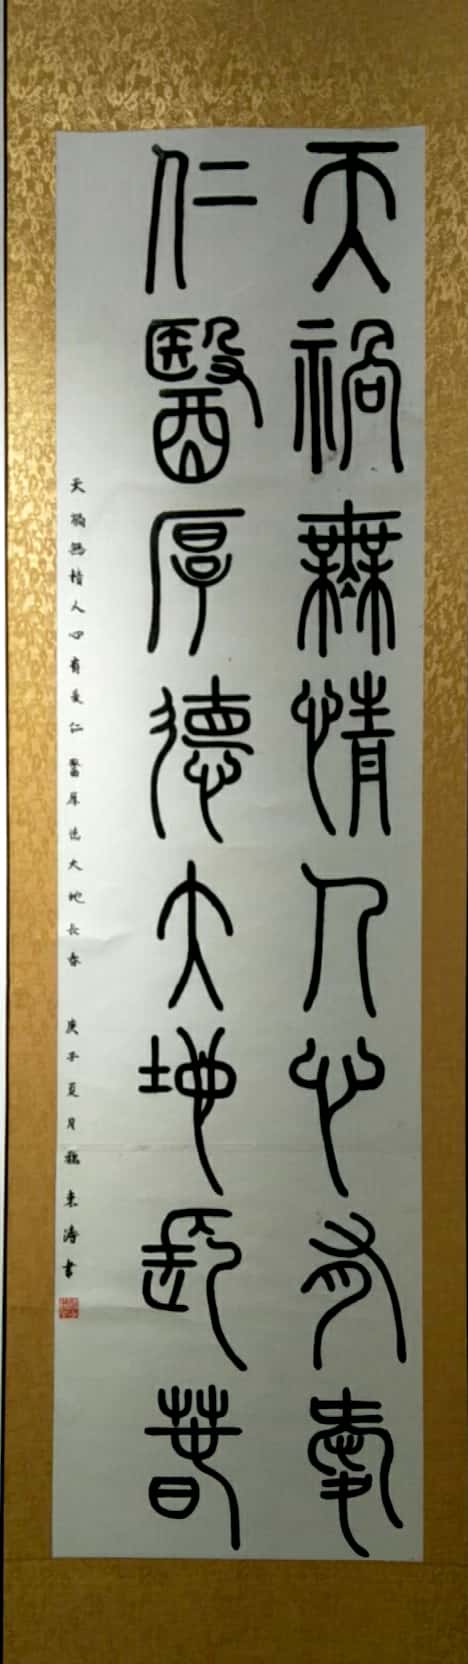 天禍無情人心有愛
仁醫厚德大地長春
天禍無情人心有愛仁醫厚德大地長春 庚子夏月 東濤書